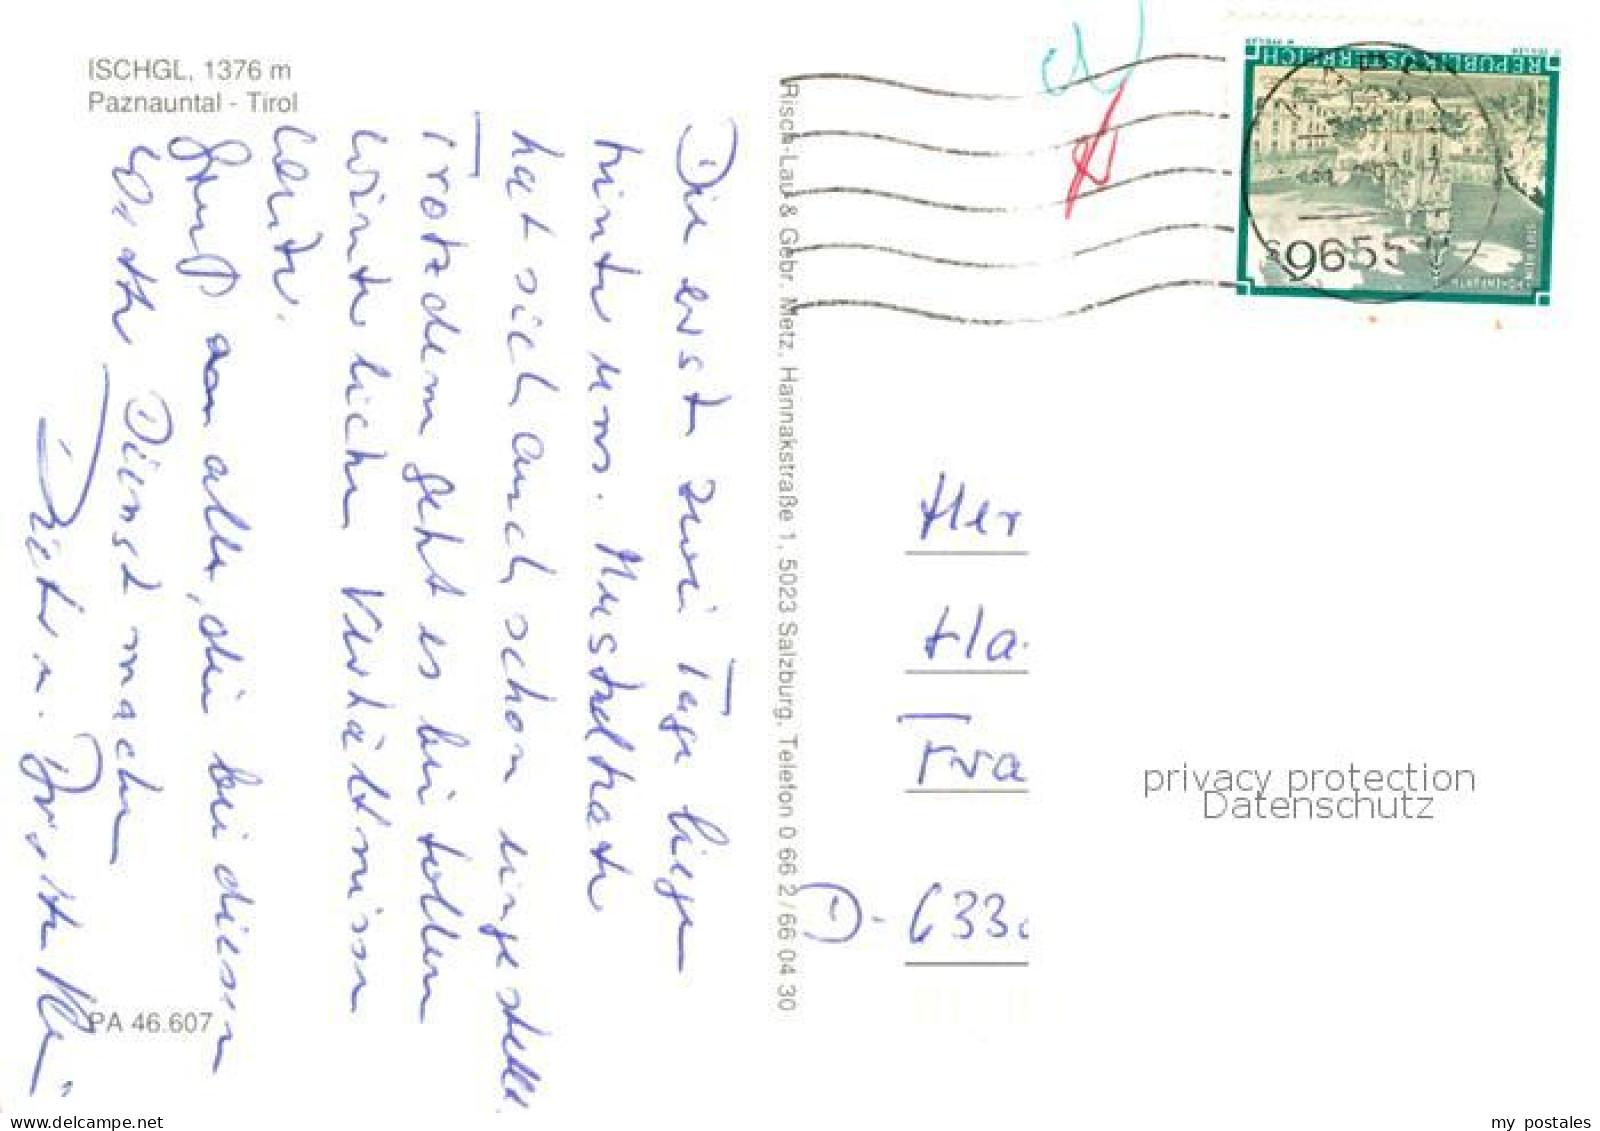 ISCHGL, 1376 m
Paznauntal - Tirol
Die erst zwei Tage liegen
hinter uns. Muskelkater
hat sich auch schon eingestellt.
Trotzdem geht es bei tollen
winterlichen Verhältnissen
weiter.
Gruß an alle, die bei diesem
Wetter Dienst machen
Dieter u.
PA 46.607
Risch-Lau & Gebr. Metz, Hannakstraße 1, 5023 Salzburg, Telefon 0 66 2 / 66 04 30
REPUBLIK ÖSTERREICH
6555
Her
Ha
Fra
D - 633
privacy protection
Datenschutz
delcampe.net
my_postales